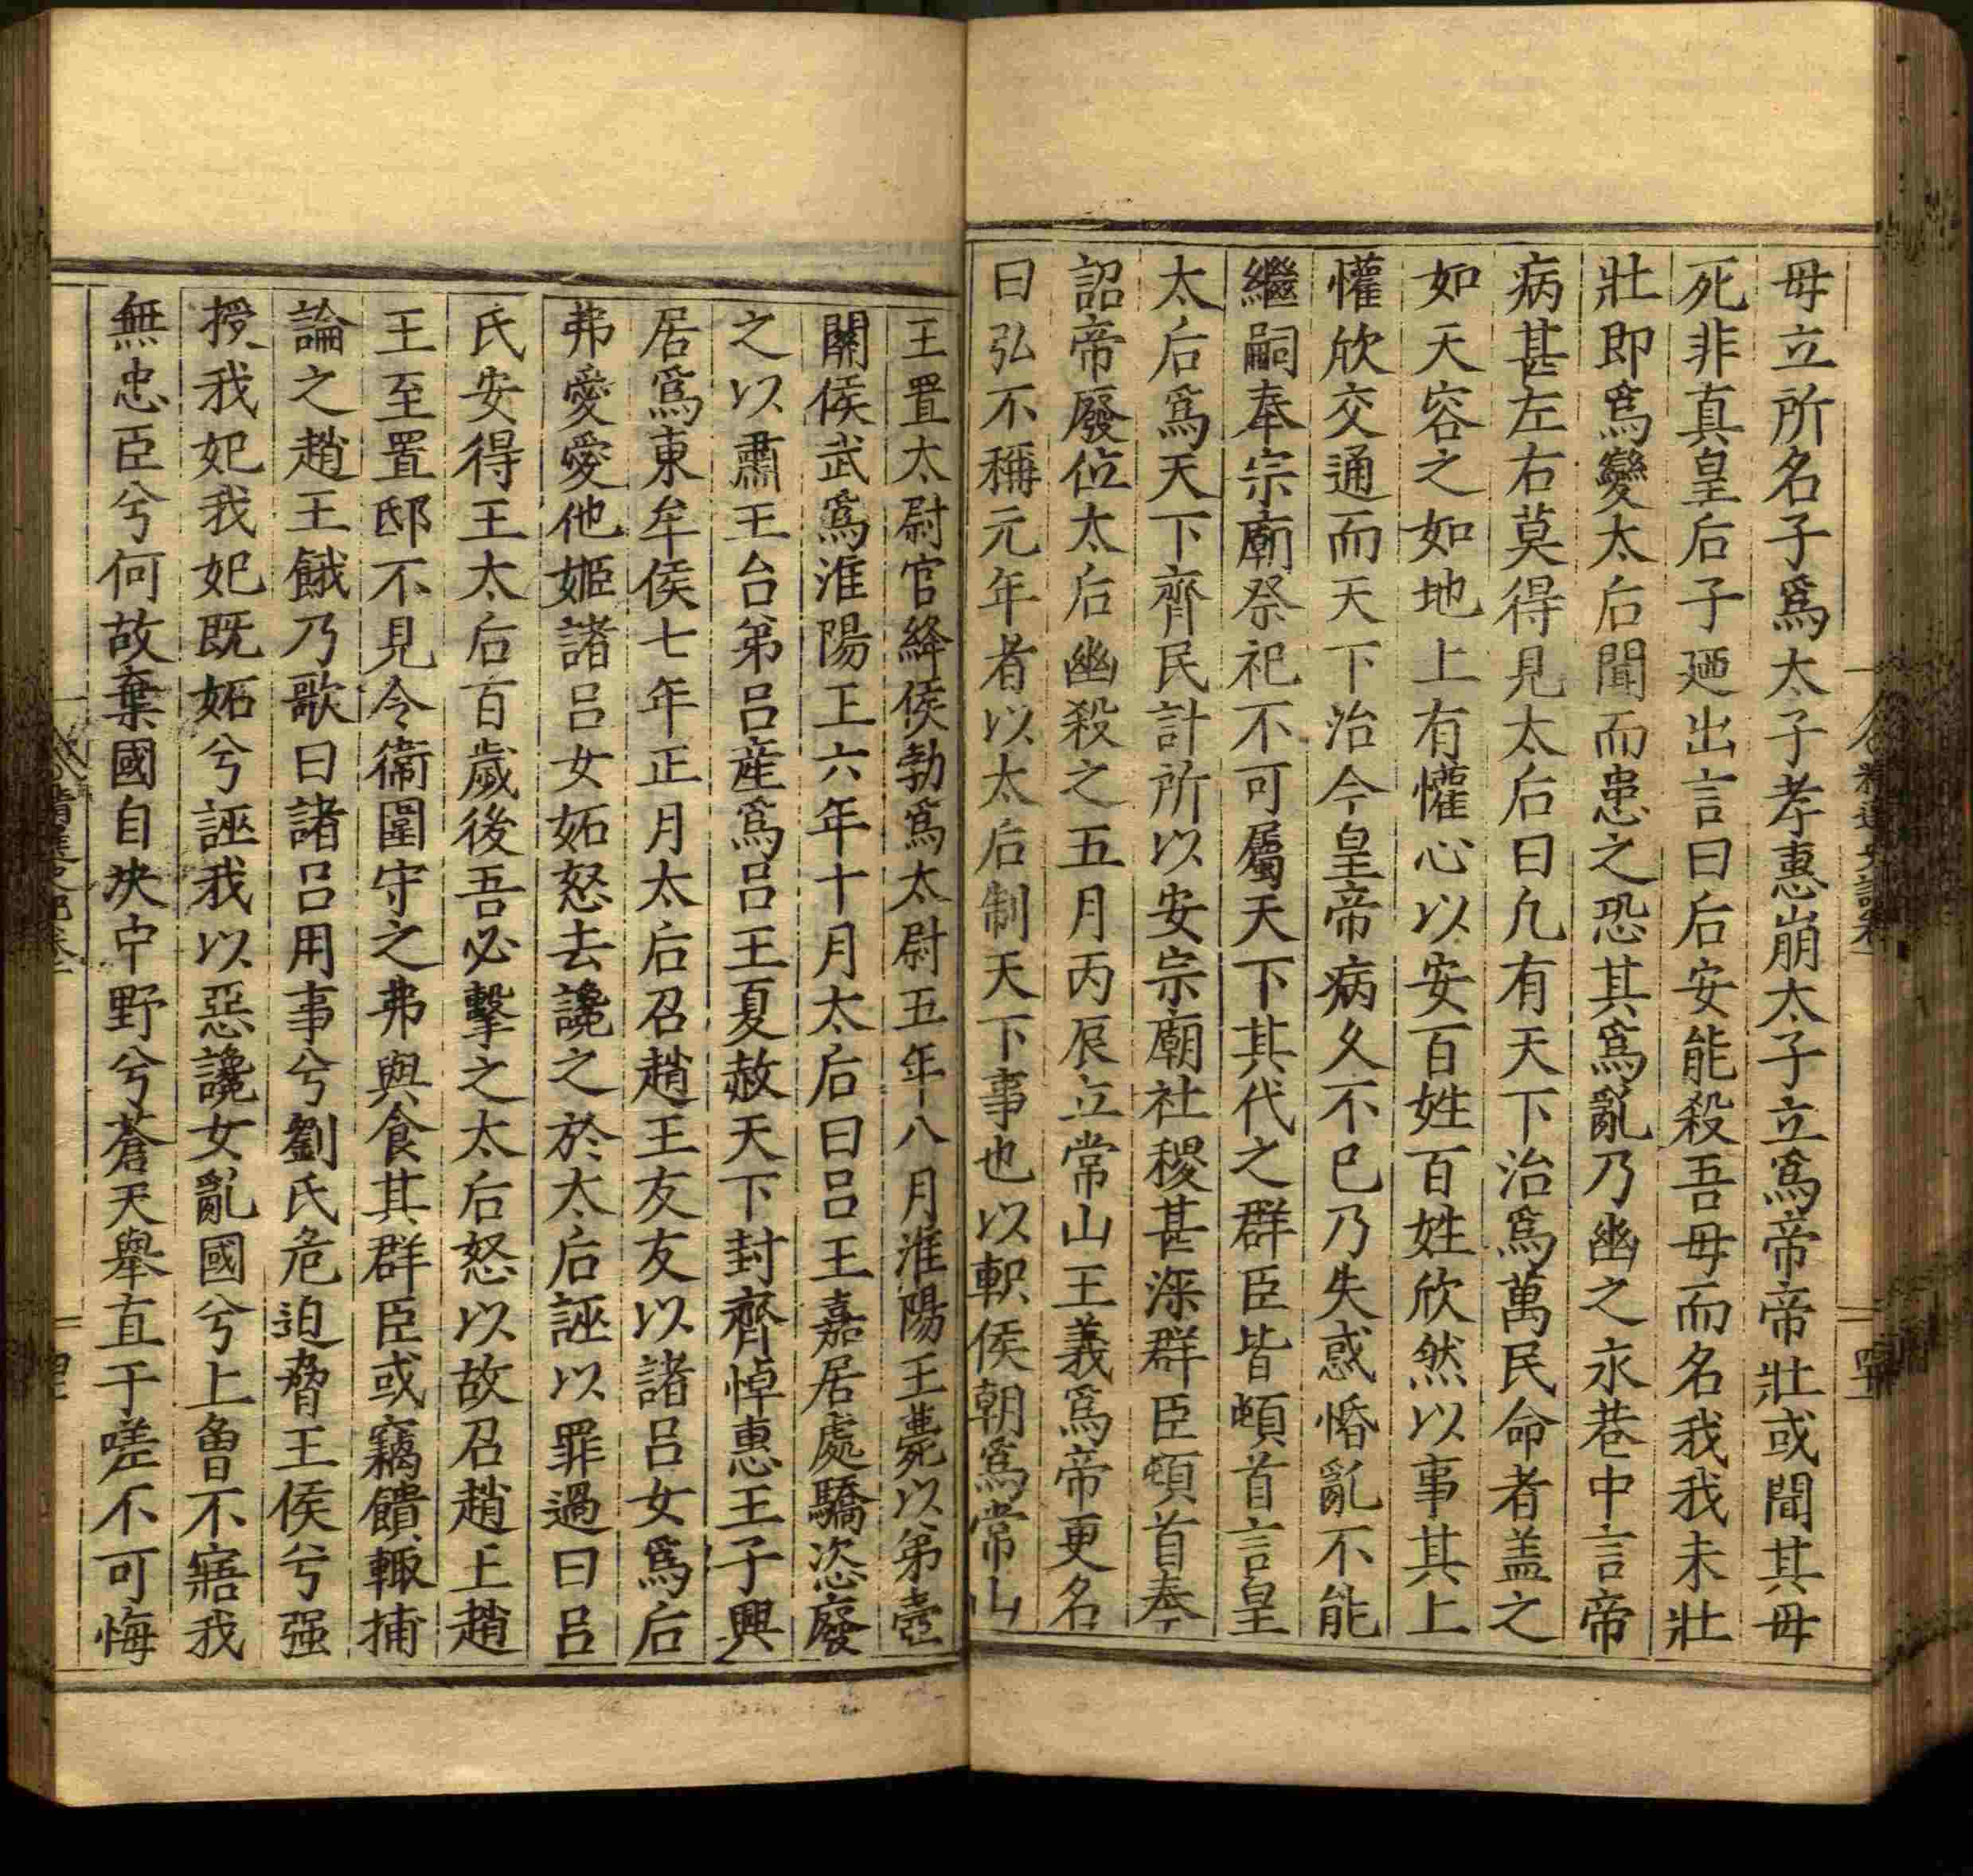 母立所名子爲太子孝惠崩太子立爲帝帝壯或聞其母
死非真皇后子廼出言曰后安能殺吾母而名我我未壯
壯即爲變太后聞而患之恐其爲亂乃幽之永巷中言帝
病甚左右莫得見太后曰凢有天下治爲萬民命者盖之
如天容之如地上有懽心以安百姓百姓欣然以事其上
懽欣交通而天下治今皇帝病久不已乃失惑惛亂不能
繼嗣奉宗廟祭祀不可屬天下其代之群臣皆頓首言皇
太后爲天下齊民計所以安宗廟社稷甚深群臣頓首奉
詔帝廢位太后幽殺之五月丙辰立常山王義爲帝更名
曰弘不稱元年者以太后制天下事也以軹侯朝爲常山
王置太尉官絳侯勃爲太尉五年八月淮陽王薨以弟壺
關侯武爲淮陽王六年十月太后曰吕王嘉居處驕恣廢
之以肅王台弟吕產爲吕王夏赦天下封齊悼惠王子興
居爲東牟侯七年正月太后召趙王友友以諸吕女爲后
弗愛愛他姬諸吕女妬怒去讒之於太后誣以罪過曰吕
氏安得王太后百歲後吾必擊之太后怒以故召趙王趙
王至置邸不見令衞圍守之弗與食其群臣或竊饋輙捕
論之趙王餓乃歌曰諸吕用事兮劉氏危迫脅王侯兮强
授我妃我妃既妬兮誣我以惡讒女亂國兮上曾不寤我
無忠臣兮何故棄國自決中野兮蒼天舉直于嗟不可悔